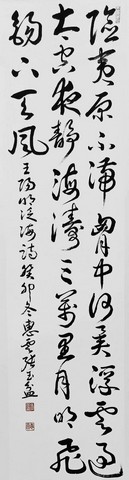 險夷原不滯胸中何異浮雲過
太空夜靜海濤三萬里月明飛
錫下天風 王陽明泛海詩癸卯冬